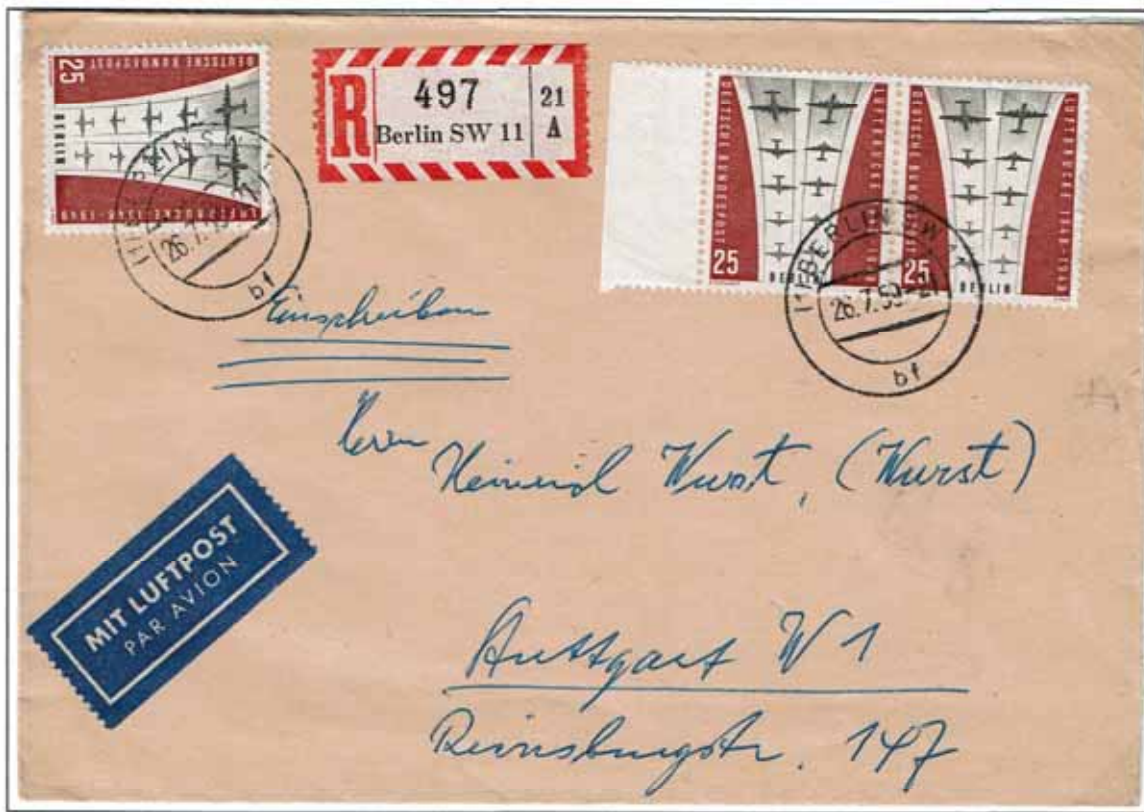 25
DEUTSCHE BUNDESPOST
BERLIN
LUFTBRÜCKE 1948-1949
R
497
Berlin SW 11
21
A
DEUTSCHE BUNDESPOST
LUFTBRÜCKE 1948-1949
25
BERLIN
DEUTSCHE BUNDESPOST
LUFTBRÜCKE 1948-1949
25
BERLIN
26.7.
bf
BERLIN SW
26.7.59
bf
Einschreiben
Herrn
Heinrich Wurst, (Wurst)
MIT LUFTPOST
PAR AVION
Stuttgart W 1
Reinsburgstr. 147